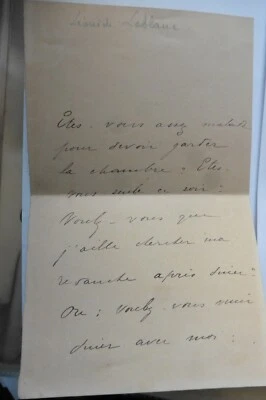 Léonide Leblanc
Êtes-vous assez malade
pour devoir garder
la chambre? Êtes-
vous visible ce soir?
Voulez-vous que
j'aille chercher ma
revanche après diner?
Ou; Voulez-vous venir
diner avec moi?